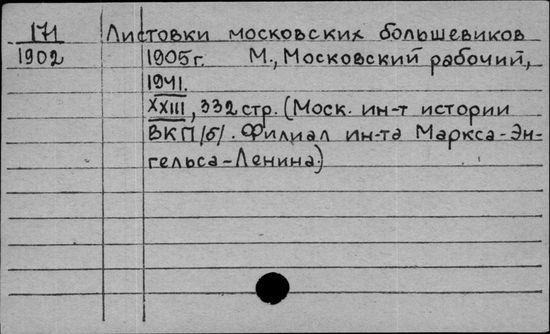 171 Листовки московских большевиков
1902 1905г. М., Московский рабочий,
1941.
XXIII, 332 стр. (Моск. ин-т истории
ВКП/б/. Филиал ин-та Маркса-Эн-
гельса-Ленина.)